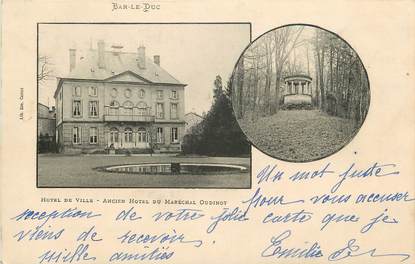 BAR-LE-DUC
HOTEL DE VILLE - ANCIEN HOTEL DU MARÉCHAL OUDINOT
Un mot juste
pour vous accuser
reception de votre jolie carte que je
viens de recevoir
mille amitiés
Emilie